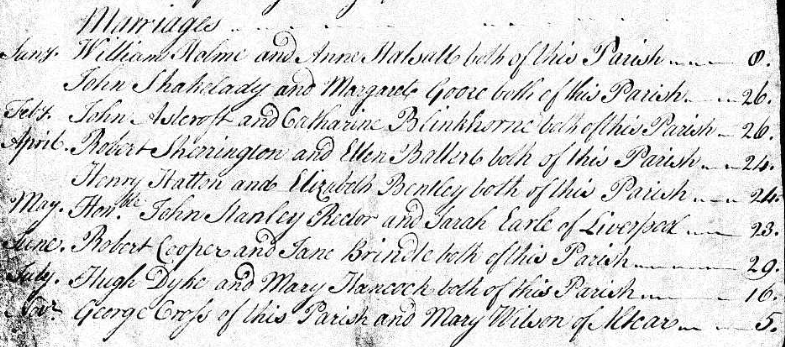 Marriages
Jany. William Holme and Anne Halsall both of this Parish 8.
John Shakelady and Margaret Goore both of this Parish 26.
Feby. John Ascroft and Catharine Blinkhorne both of this Parish 26.
April. Robert and Ellen both of this Parish 24.
Henry Hatton and Elizabeth Bentley both of this Parish 24.
May. Honble. John Stanley Rector and Sarah Earle of Liverpool 23.
June. Robert Cooper and Jane Brindle both of this Parish 29.
July. Hugh Dyke and Mary Hancock both of this Parish 16.
Novr. George Cross of this Parish and Mary Wilson of Altcar 5.